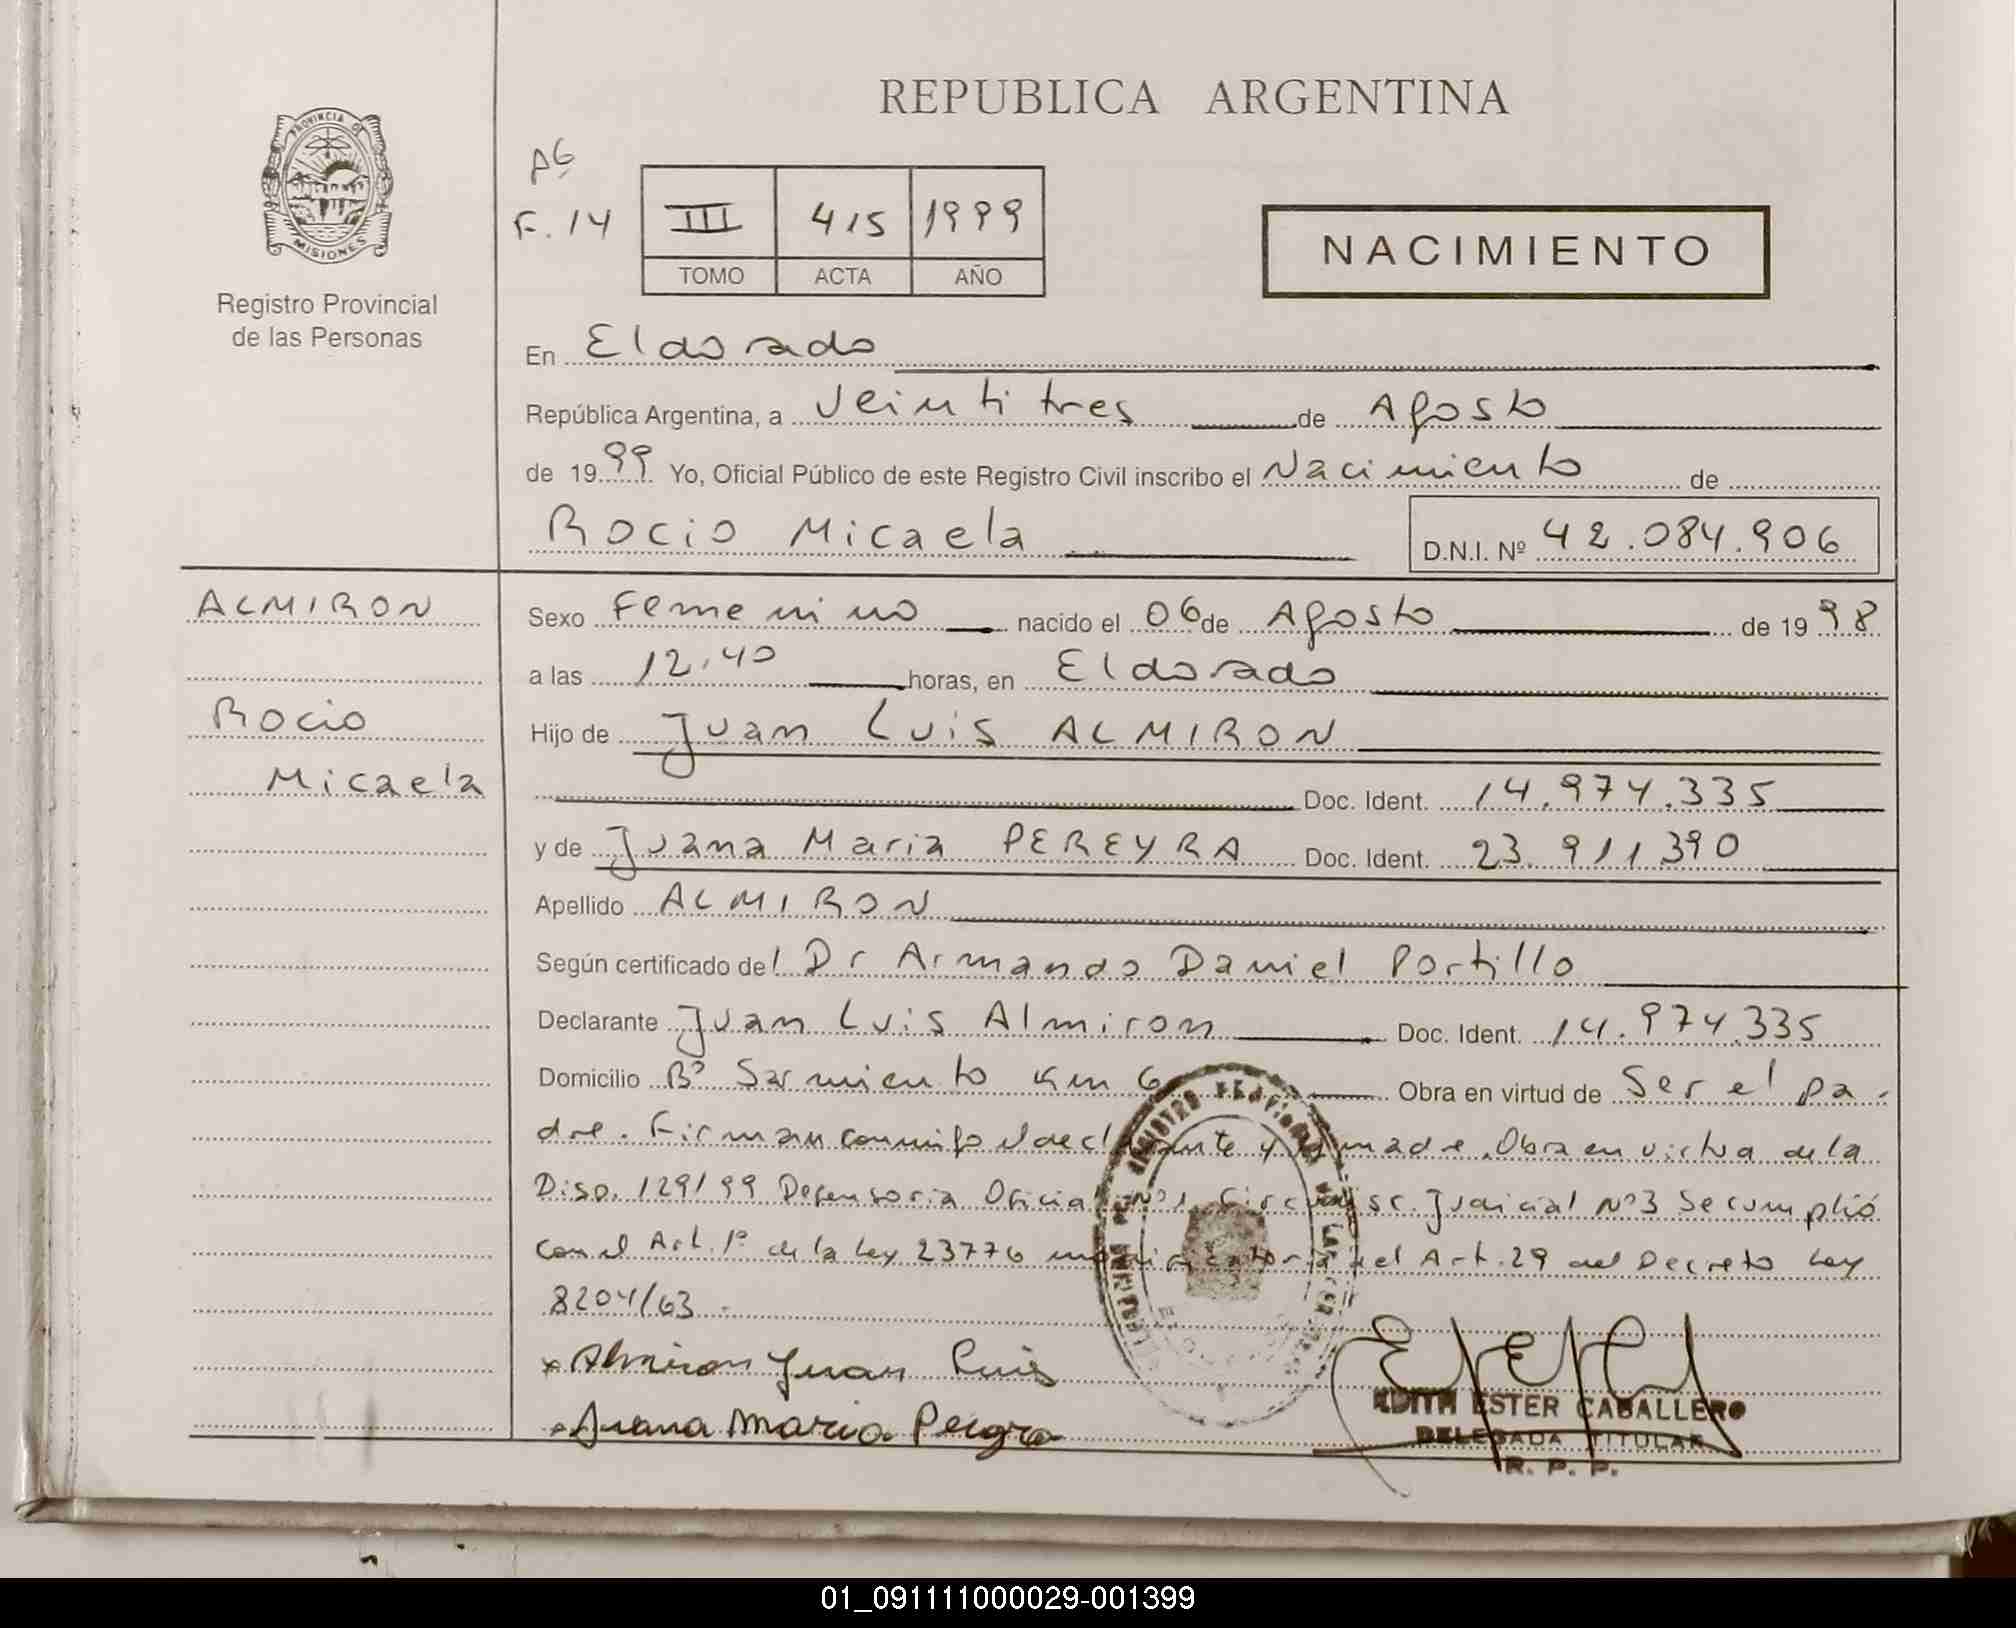 REPUBLICA ARGENTINA
PROVINCIA DE
MISIONES
Registro Provincial
de las Personas
F. 14
III 415 1999
TOMO ACTA AÑO
NACIMIENTO
En Eldorado
República Argentina, a veintitres de Agosto
de 1999 Yo, Oficial Público de este Registro Civil inscribo el Nacimiento de
Rocio Micaela D.N.I. Nº 42.084.906
ALMIRON
Rocio
Micaela
Sexo Femenino nacido el 06 de Agosto de 1998
a las 12.40 horas, en Eldorado
Hijo de Juan Luis ALMIRON
Doc. Ident. 14.974.335
y de Juana Maria PEREYRA Doc. Ident. 23.911.390
Apellido ALMIRON
Según certificado del Dr Armando Daniel Portillo
Declarante Juan Luis Almiron Doc. Ident. 14.974.335
Domicilio Bº Sarmiento Km 6 Obra en virtud de Ser el pa-
dre. Firman conmigo el declarante y la madre. Obra en virtud de la
Disp. 129/99 Defensoria Oficial Nº1 Circunsc. Judicial Nº3 Se cumplió
con el Art. 1º de la Ley 23776 modificatoria del Art. 29 del Decreto Ley
8204/63.-
x Almiron Juan Luis
x Juana Maria Pereyra
EDITH ESTER CABALLERO
DELEGADA TITULAR
R. P. P.
01_091111000029-001399